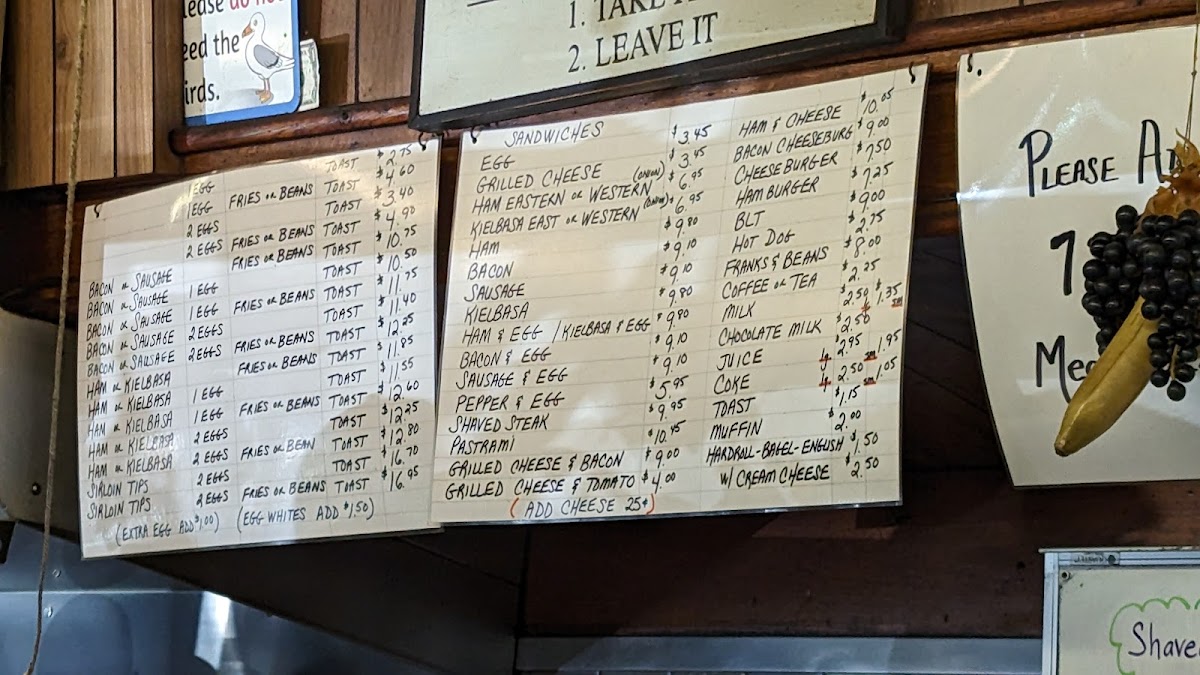 lease do no
eed the
irds.
1. TAKE
2. LEAVE IT
1 EGG TOAST $2.75
1 EGG FRIES OR BEANS TOAST $4.60
2 EGGS TOAST $3.40
2 EGGS FRIES OR BEANS TOAST $4.90
BACON OR SAUSAGE FRIES OR BEANS TOAST $10.75
BACON OR SAUSAGE 1 EGG TOAST $10.50
BACON OR SAUSAGE 1 EGG FRIES OR BEANS TOAST $11.75
BACON OR SAUSAGE 2 EGGS TOAST $11.40
BACON OR SAUSAGE 2 EGGS FRIES OR BEANS TOAST $12.25
HAM OR KIELBASA FRIES OR BEANS TOAST $11.85
HAM OR KIELBASA 1 EGG TOAST $11.55
HAM OR KIELBASA 1 EGG FRIES OR BEANS TOAST $12.60
HAM OR KIELBASA 2 EGGS TOAST $12.25
HAM OR KIELBASA 2 EGGS FRIES OR BEAN TOAST $12.80
SIRLOIN TIPS 2 EGGS TOAST $16.70
SIRLOIN TIPS 2 EGGS FRIES OR BEANS TOAST $16.95
(EXTRA EGG ADD $1.00) (EGG WHITES ADD $1.50)
SANDWICHES
EGG $3.45
GRILLED CHEESE $3.45
HAM EASTERN OR WESTERN (ONION) $6.95
KIELBASA EAST OR WESTERN (ONION) $6.95
HAM $9.80
BACON $9.10
SAUSAGE $9.10
KIELBASA $9.80
HAM & EGG / KIELBASA & EGG $9.80
BACON & EGG $9.10
SAUSAGE & EGG $9.10
PEPPER & EGG $5.95
SHAVED STEAK $9.95
PASTRAMI $10.45
GRILLED CHEESE & BACON $9.00
GRILLED CHEESE & TOMATO $4.00
(ADD CHEESE 25¢)
HAM & CHEESE $10.05
BACON CHEESEBURG $9.00
CHEESEBURGER $7.50
HAMBURGER $7.25
BLT $9.00
HOT DOG $2.75
FRANKS & BEANS $8.00
COFFEE OR TEA $2.25
MILK $2.50 $1.35 sm
CHOCOLATE MILK $2.50
JUICE L $2.95 sm 1.95
COKE L $2.50 sm 1.05
TOAST $1.15
MUFFIN $2.00
HARDROLL-BAGEL-ENGLISH $1.50
W/ CREAM CHEESE $2.50
PLEASE
Shave